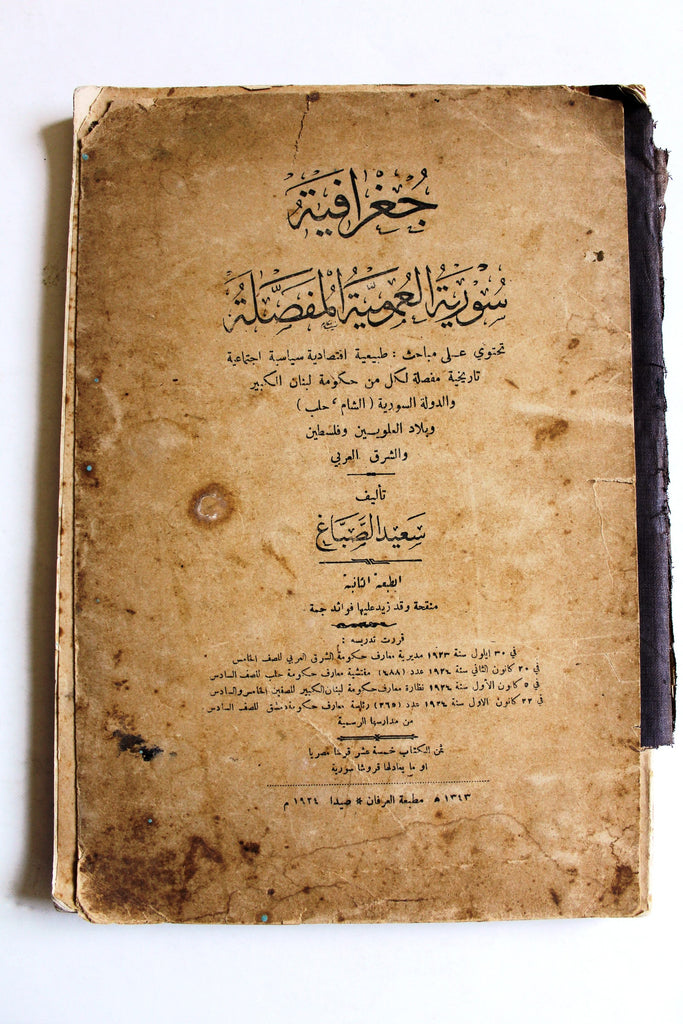 جُغْرافيَة
سُوريَة العُموميَّة المُفَصَّلَة
تحتوي عـلى مباحث : طبيعية اقتصادية سياسية اجتماعية
تاريخية مفصلة لكل من حكومة لبنان الكبير
والدولة السورية ( الشام ، حلب )
وبلاد العلويـين وفلسطين
والشرق العربي
تأليف
سَعيد الصَّبَّاغ
الطبعة الثانية
منقحة وقد زيد عليها فوائد جمة
قررت تدريسه :
في ٣٠ ايلول سنة ١٩٢٣ مديرية معارف حكومة الشرق العربي للصف الخامس
في ٢٠ كانون الثاني سنة ١٩٢٤ عدد (٤٨٨) مفتشية معارف حكومة حلب للصف السادس
في ٥ كانون الأول سنة ١٩٢٤ نظارة معارف حكومة لبنان الكبير للصفين الخامس والسادس
في ٢٢ كانون الاول سنة ١٩٢٤ عدد (٣٦٥) رئاسة معارف حكومة دمشق للصف السادس
من مدارسها الرسمية
ثمن الكتاب خمسة عشر قرشا مصريا
او ما يعادلها قروشا سورية
١٣٤٣ هـ مطبعة العرفان * صيدا ١٩٢٤ م